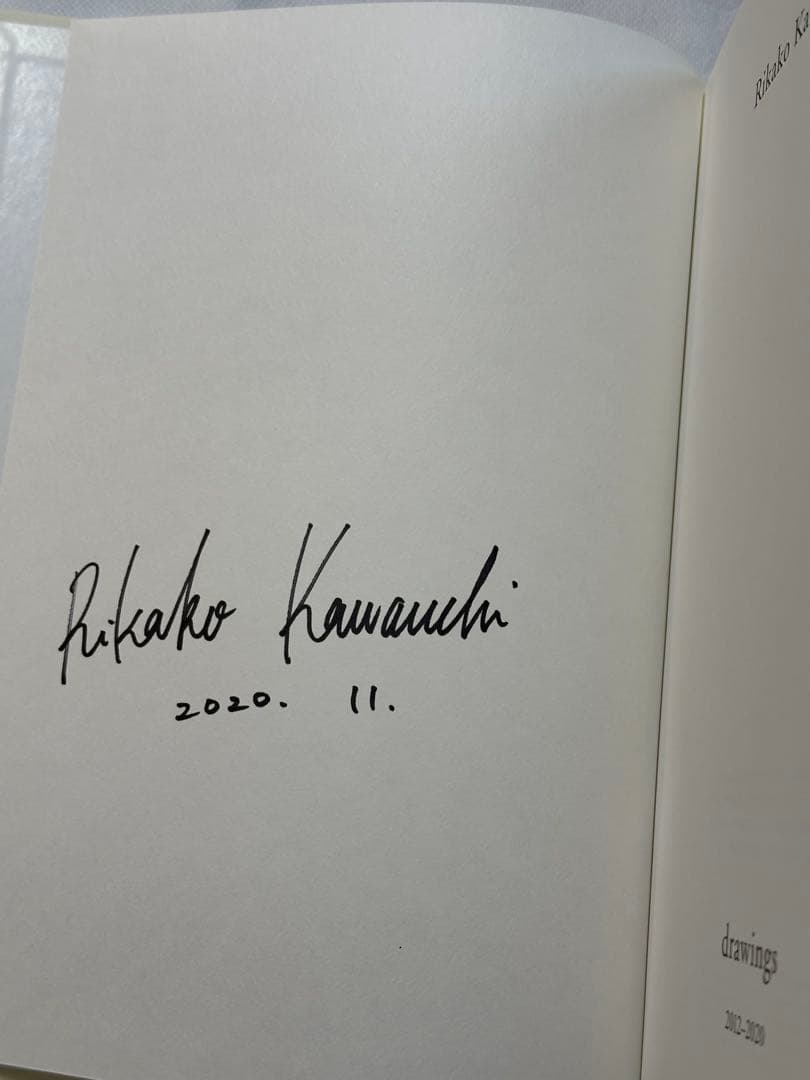 Rikako Kawauchi
2020. 11.
Rikako Ka
drawings
2012–2020